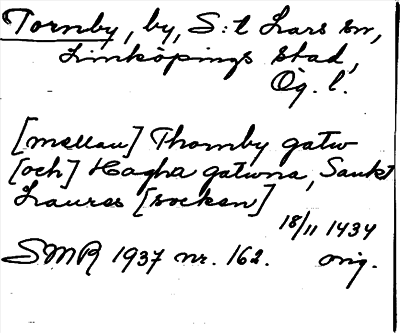 Tornby, by, S:t Lars sn,
Linköpings stad,
Ög. l.
[mellan] Thornby gatw
[och] Hagha gatwna, Sankt
Laures [socken]
18/11 1434
SMR 1937 nr. 162. orig.